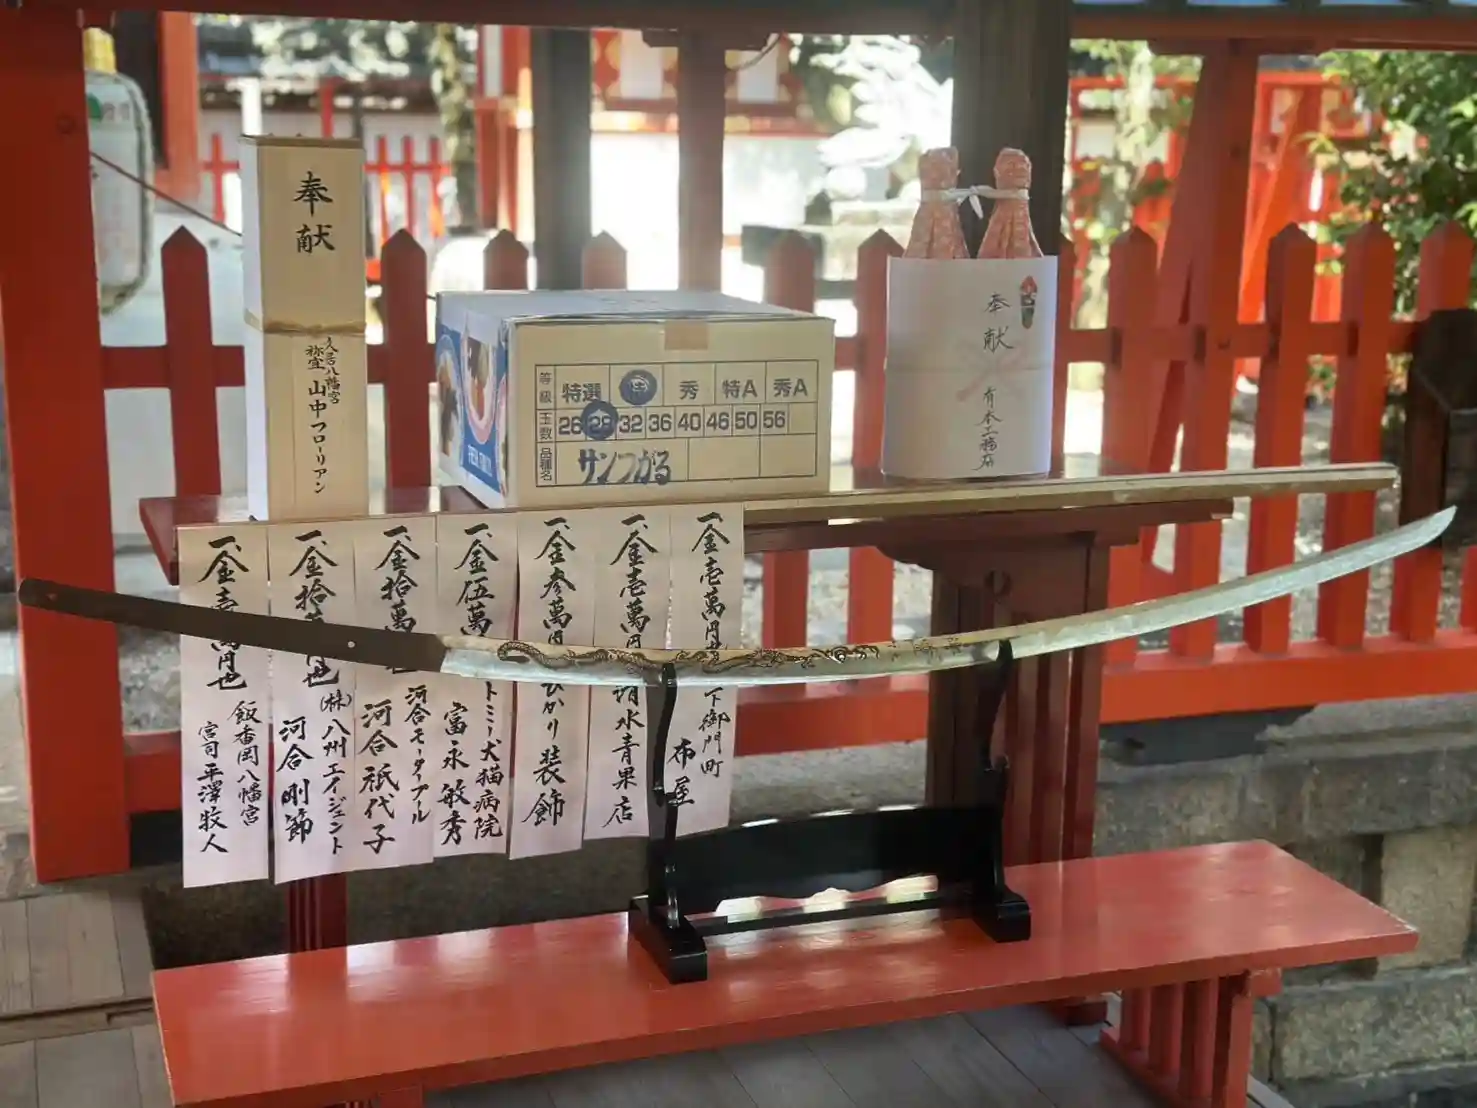 奉献
久居八幡宮
祢宜 山中フローリアン
等級
特選
秀
特A
秀A
玉数
26 28 32 36 40 46 50 56
品種名
サンつがる
奉献
有本工務店
一、金壱萬円也
下御門町
布屋
一、金壱萬円
清水青果店
一、金参萬円
ひかり装飾
一、金伍萬
トミー犬猫病院
富永敏秀
一、金拾萬
河合モータープール
河合祇代子
一、金拾萬円也
(株)八州エイジェント
河合剛節
一、金壱萬円也
飯香岡八幡宮
宮司 平澤牧人